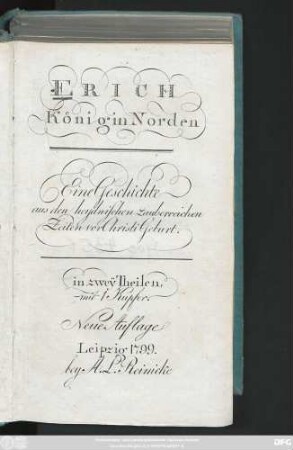 ERICH
König in Norden
Eine Geschichte
aus den heydnischen zauberreichen
Zeiten vor Christi Geburt.
in zwey Theilen,
mit 1 Kupfer.
Neue Auflage
Leipzig 1799.
bey A. L. Reinicke